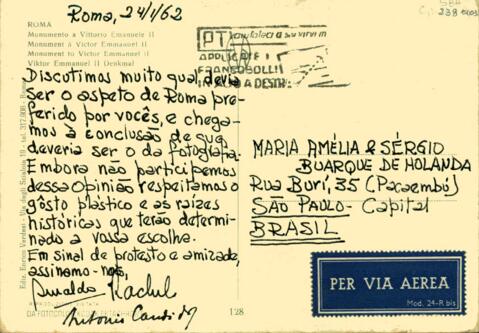 Roma, 24/1/62
ROMA
Monumento a Vittorio Emanuele II
Monument à Victor Emmanuel II
Monument to Victor Emmanuel II
Viktor Emmanuel II Denkmal
Discutimos muito qual devia
ser o aspeto de Roma pre-
ferido por vocês, e chega-
mos à conclusão de que
deveria ser o da fotografia.
Embora não participemos
dessa opinião respeitamos o
gôsto plástico e as raízes
históricas que terão determi-
nado a vossa escolha.
Em sinal de protesto e amizade,
assinamo-nos,
Antonio Candido
128
PT
APPLICATE I
FRANCOBOLLI
IN ALTO A DESTRA
MARIA AMÉLIA & SÉRGIO
BUARQUE DE HOLANDA
Rua Buri, 35 (Pacaembú)
SÃO PAULO - Capital
BRASIL
PER VIA AEREA
Mod. 24-R bis